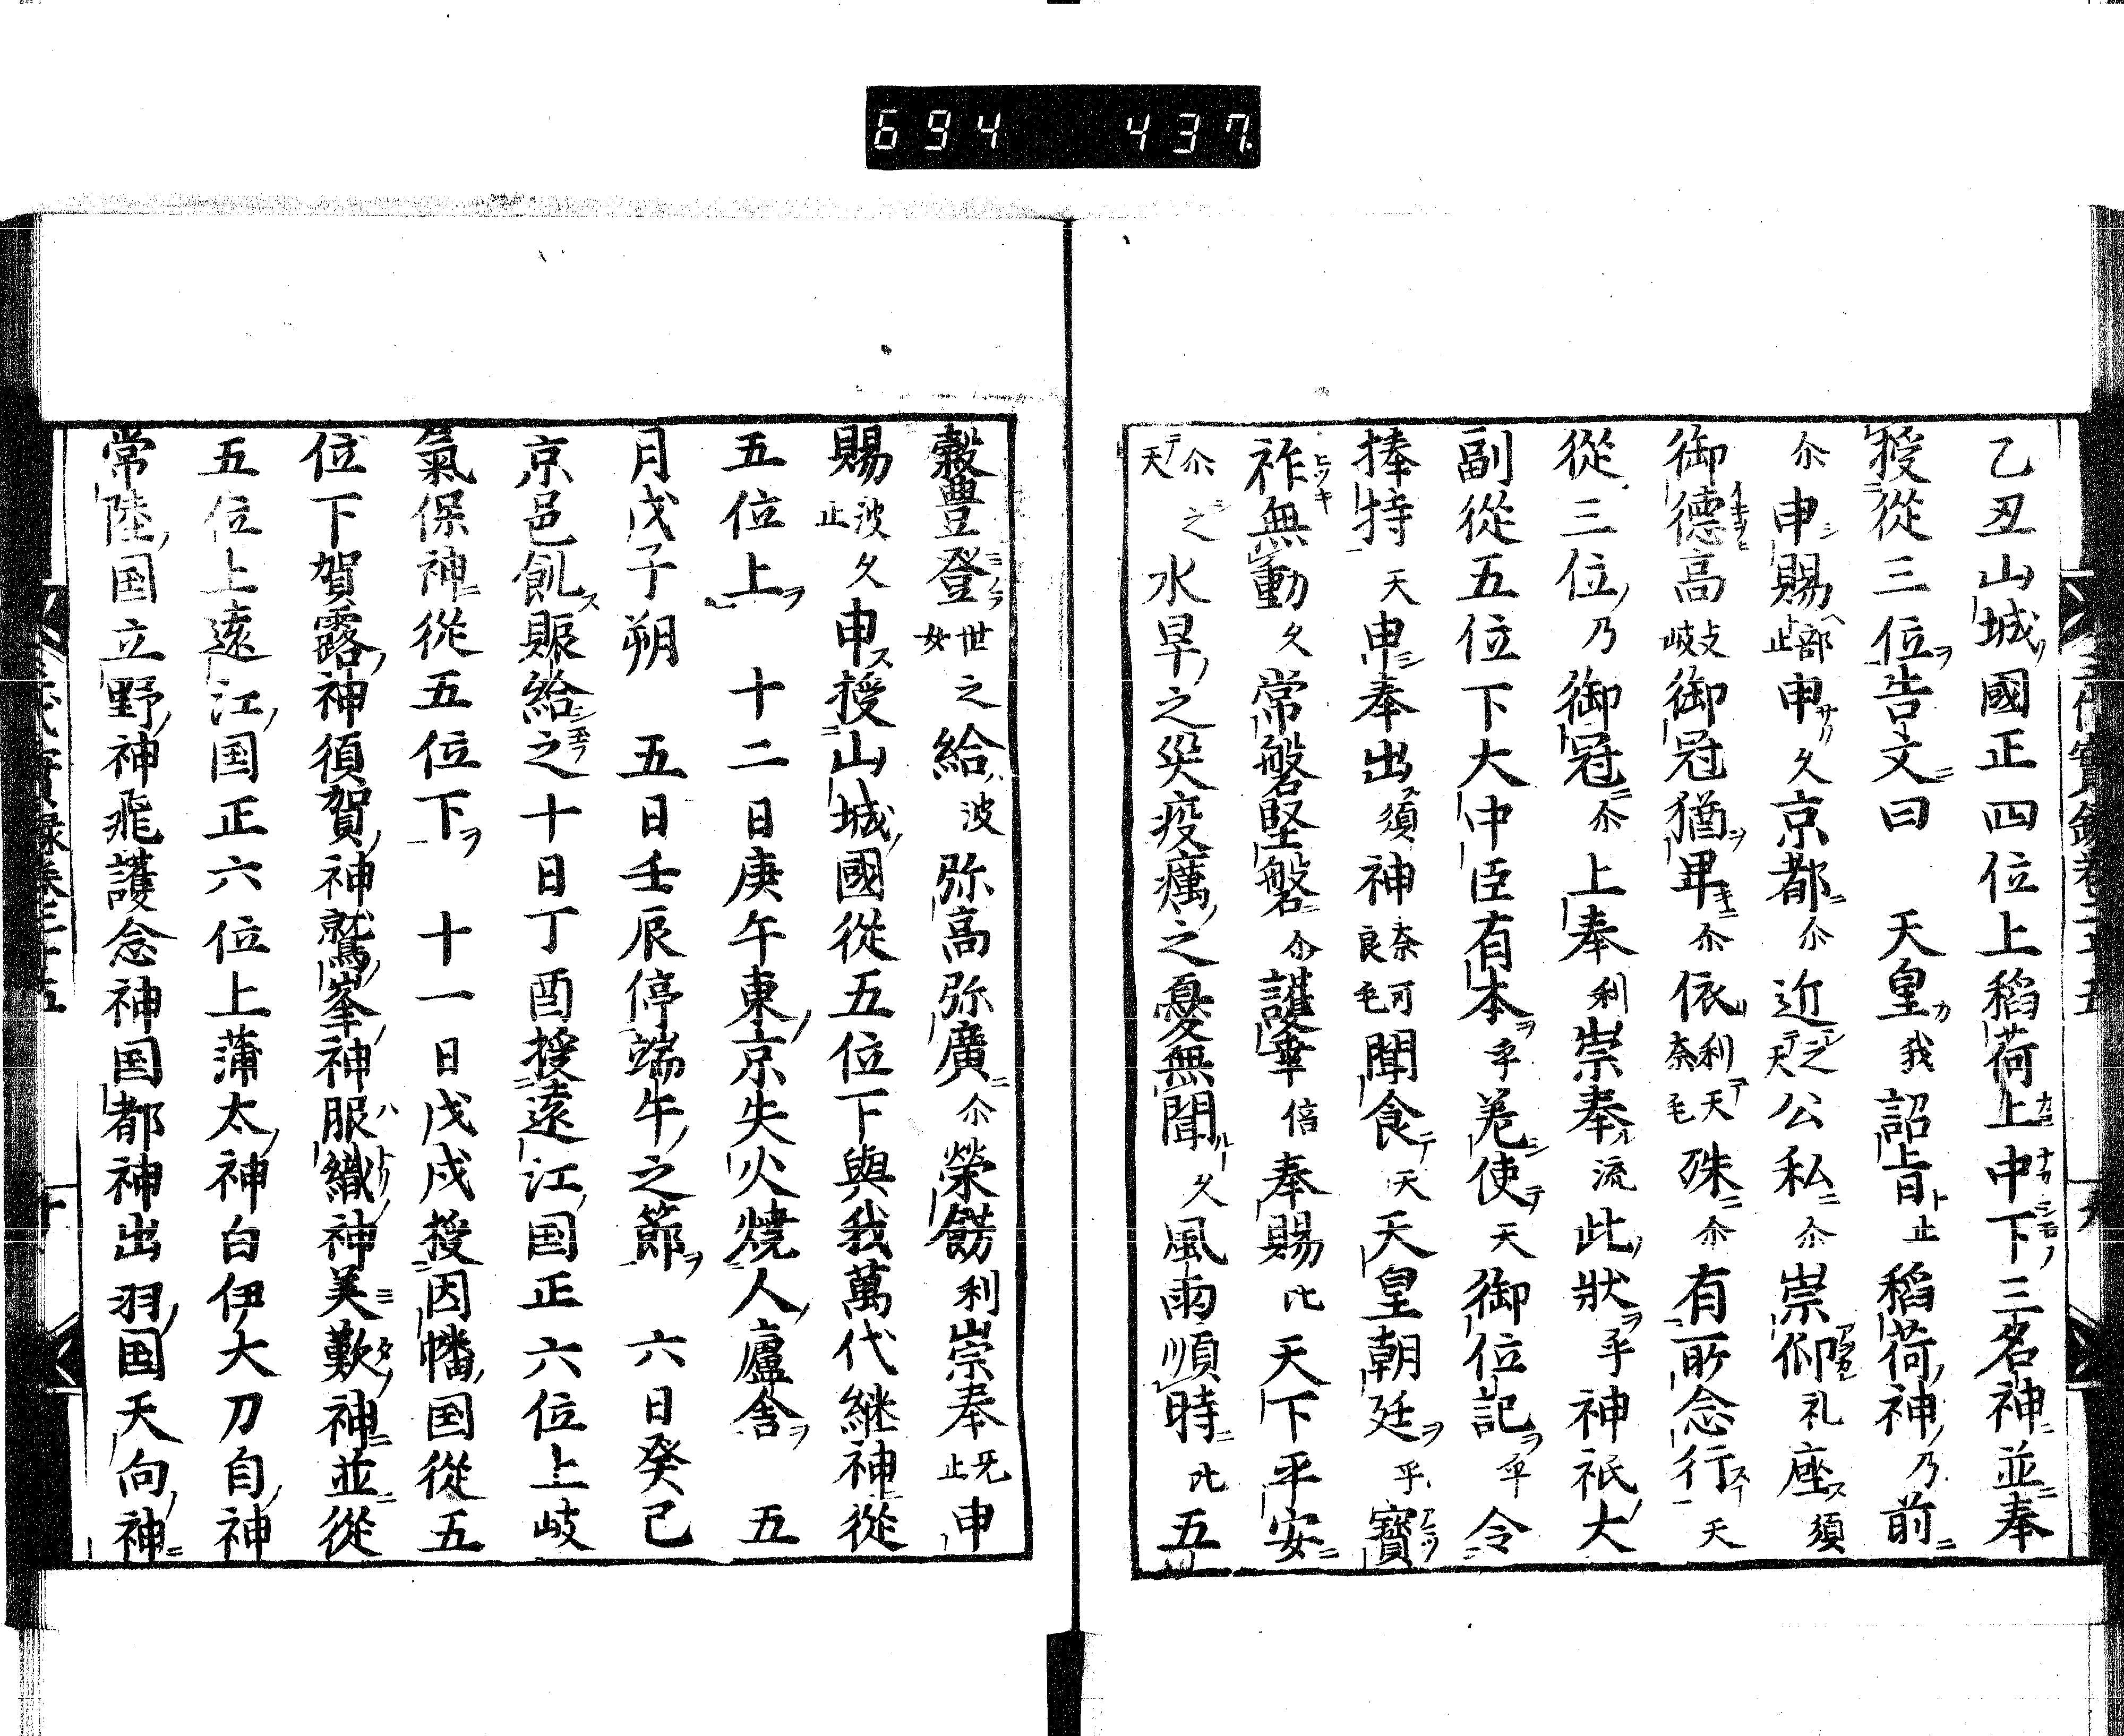 694 437
乙丑山城國正四位上稻荷上中下三名神並奉
授從三位告文曰 天皇我詔旨止稻荷神乃前
尒申賜部止申久京都尒近之天公私尒崇仰礼座須
御德高攴岐御冠猶卑尒依利天奈毛殊尒有所念行天
從三位乃御冠尒上奉利崇奉流此狀乎神祇大
副從五位下大中臣有本乎差使天御位記乎令
捧持天申奉出須神奈良可毛聞食天天皇朝廷乎寳
祚無動久常磐堅磐尒護幸倍奉賜比天下平安
尒天之水旱之災疫癘之憂無聞久風雨順時比五
穀豊登世女之給波弥高弥廣尒榮餝利崇奉牟止申
賜波止久申授山城國從五位下與我萬代継神從
五位上 十二日庚午東京失火燒人廬舎 五
月戊子朔 五日壬辰停端午之節 六日癸巳
京邑飢賑給之十日丁酉授遠江国正六位上岐
氣保神從五位下 十一日戊戌授因幡国從五
位下賀露神須賀神鷲峯神服織神美歎神並從
五位上遠江国正六位上蒲太神白伊大刀自神
常陸国立野神飛護念神国都神出羽国天向神